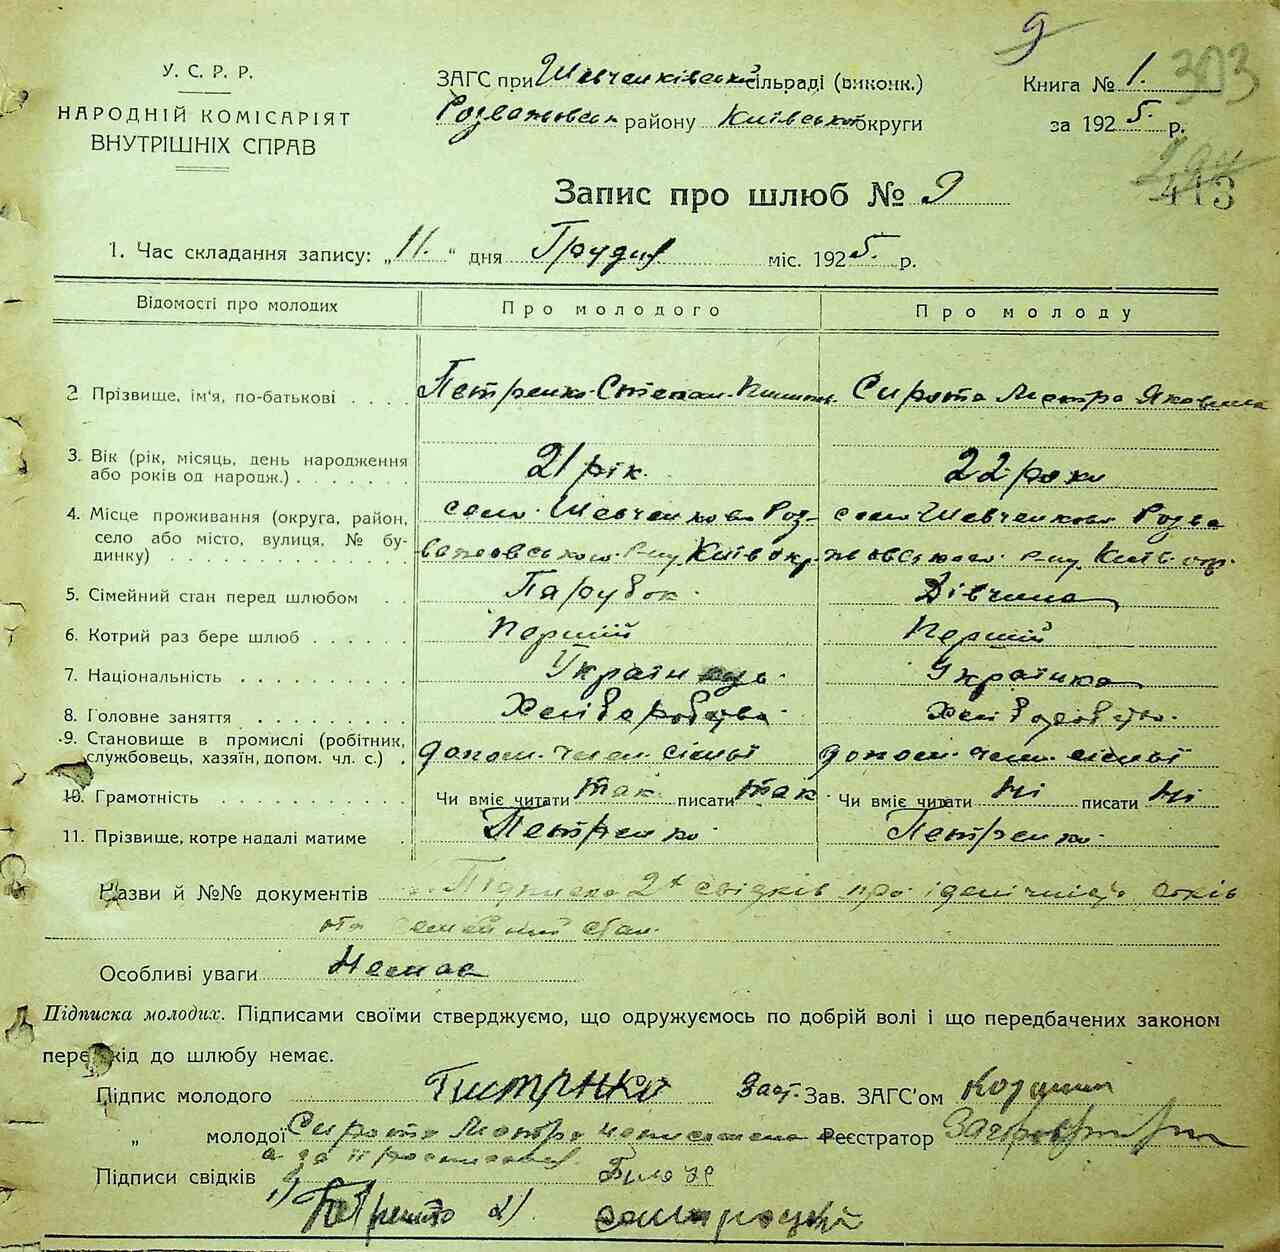 9
У. С. Р. Р.
НАРОДНІЙ КОМІСАРІЯТ
ВНУТРІШНІХ СПРАВ
ЗАГС при Шевченківській сільраді (виконк.)
Розважовськ району Київської округи
Книга № 1.
303
за 1925 р.
413
Запис про шлюб № 9
1. Час складання запису: „11.“ дня Грудня міс. 1925 р.
Відомості про молодих Про молодого Про молоду
2 Прізвище, ім'я, по-батькові Петренко Степан Сирота Мотра Яковлевна
3. Вік (рік, місяць, день народження 21 рік. 22 роки
або років од народж.)
4. Місце проживання (округа, район, село Шевченково Роз- село Шевченково Розва
село або місто, вулиця, № бу- важовського р-ну Київ окр. жовського р-ну Київ окр.
динку)
5. Сімейний стан перед шлюбом Парубок Дівчина
6. Котрий раз бере шлюб Перший Перший
7. Національність Українець Українка
8. Головне заняття Хліборобство Хліборобство
9. Становище в промислі (робітник, допом. член сімьї допом. член сімьї
службовець, хазяїн, допом. чл. с.)
10. Грамотність Чи вміє читати так писати так Чи вміє читати Ні писати Ні
11. Прізвище, котре надалі матиме Петренко Петренко
Назви й №№ документів Підписка 2х свідків про
та семейний стан.
Особливі уваги Немає
Підписка молодих. Підписами своїми стверджуємо, що одружуємось по добрій волі і що передбачених законом
перешкід до шлюбу немає.
Підпис молодого Заст. Зав. ЗАГС'ом
„ молодої Сирота Мотра неписьмена Реєстратор
а за її росписався
Підписи свідків
1) 2)